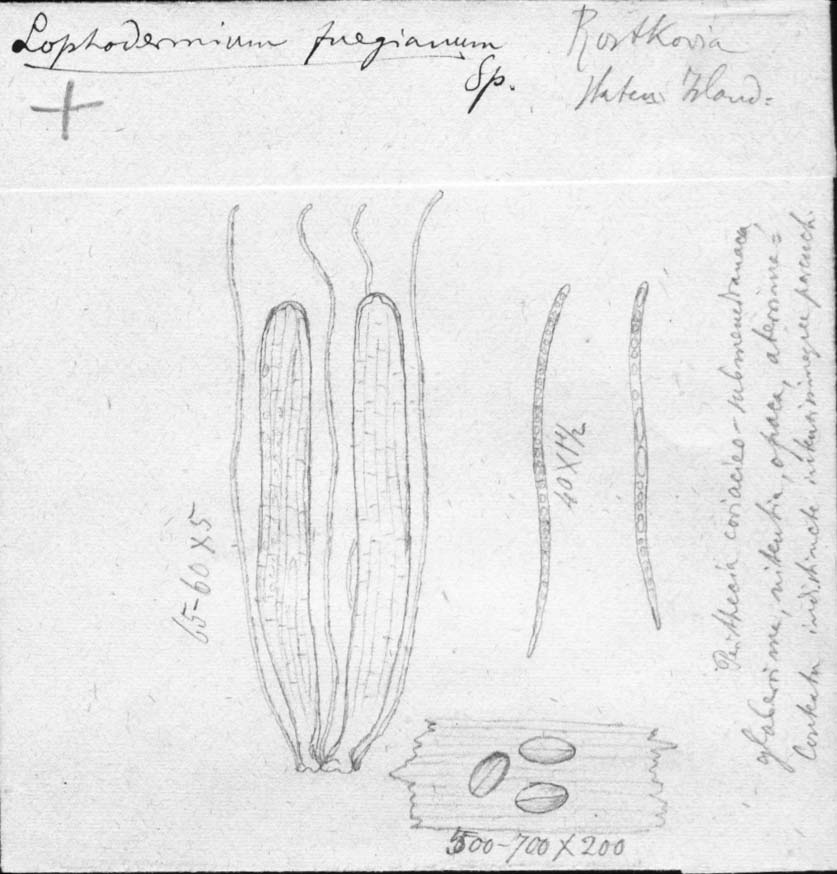 Lophodermium fuegianum
Sp.
Rostkovia
Staten Island=
+
65-60 X 5
40 X 1 1/2
500-700 X 200
Perithecia coriaceo-submembranacea
glaberrima, nitentia, opaca, aterrima=
Contextu indistincte minutissimeque parench.